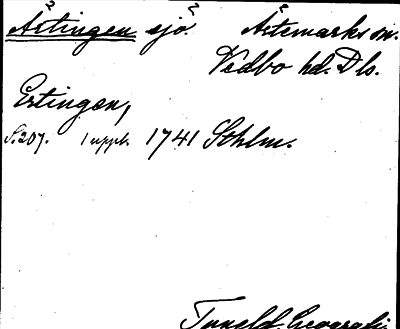 Årtingen sjö Årtemarks sn.
Vedbo hd. Dls.
Ertingen,
S. 207. 1 uppl. 1741 Sthlm.
Tuneld Geografi